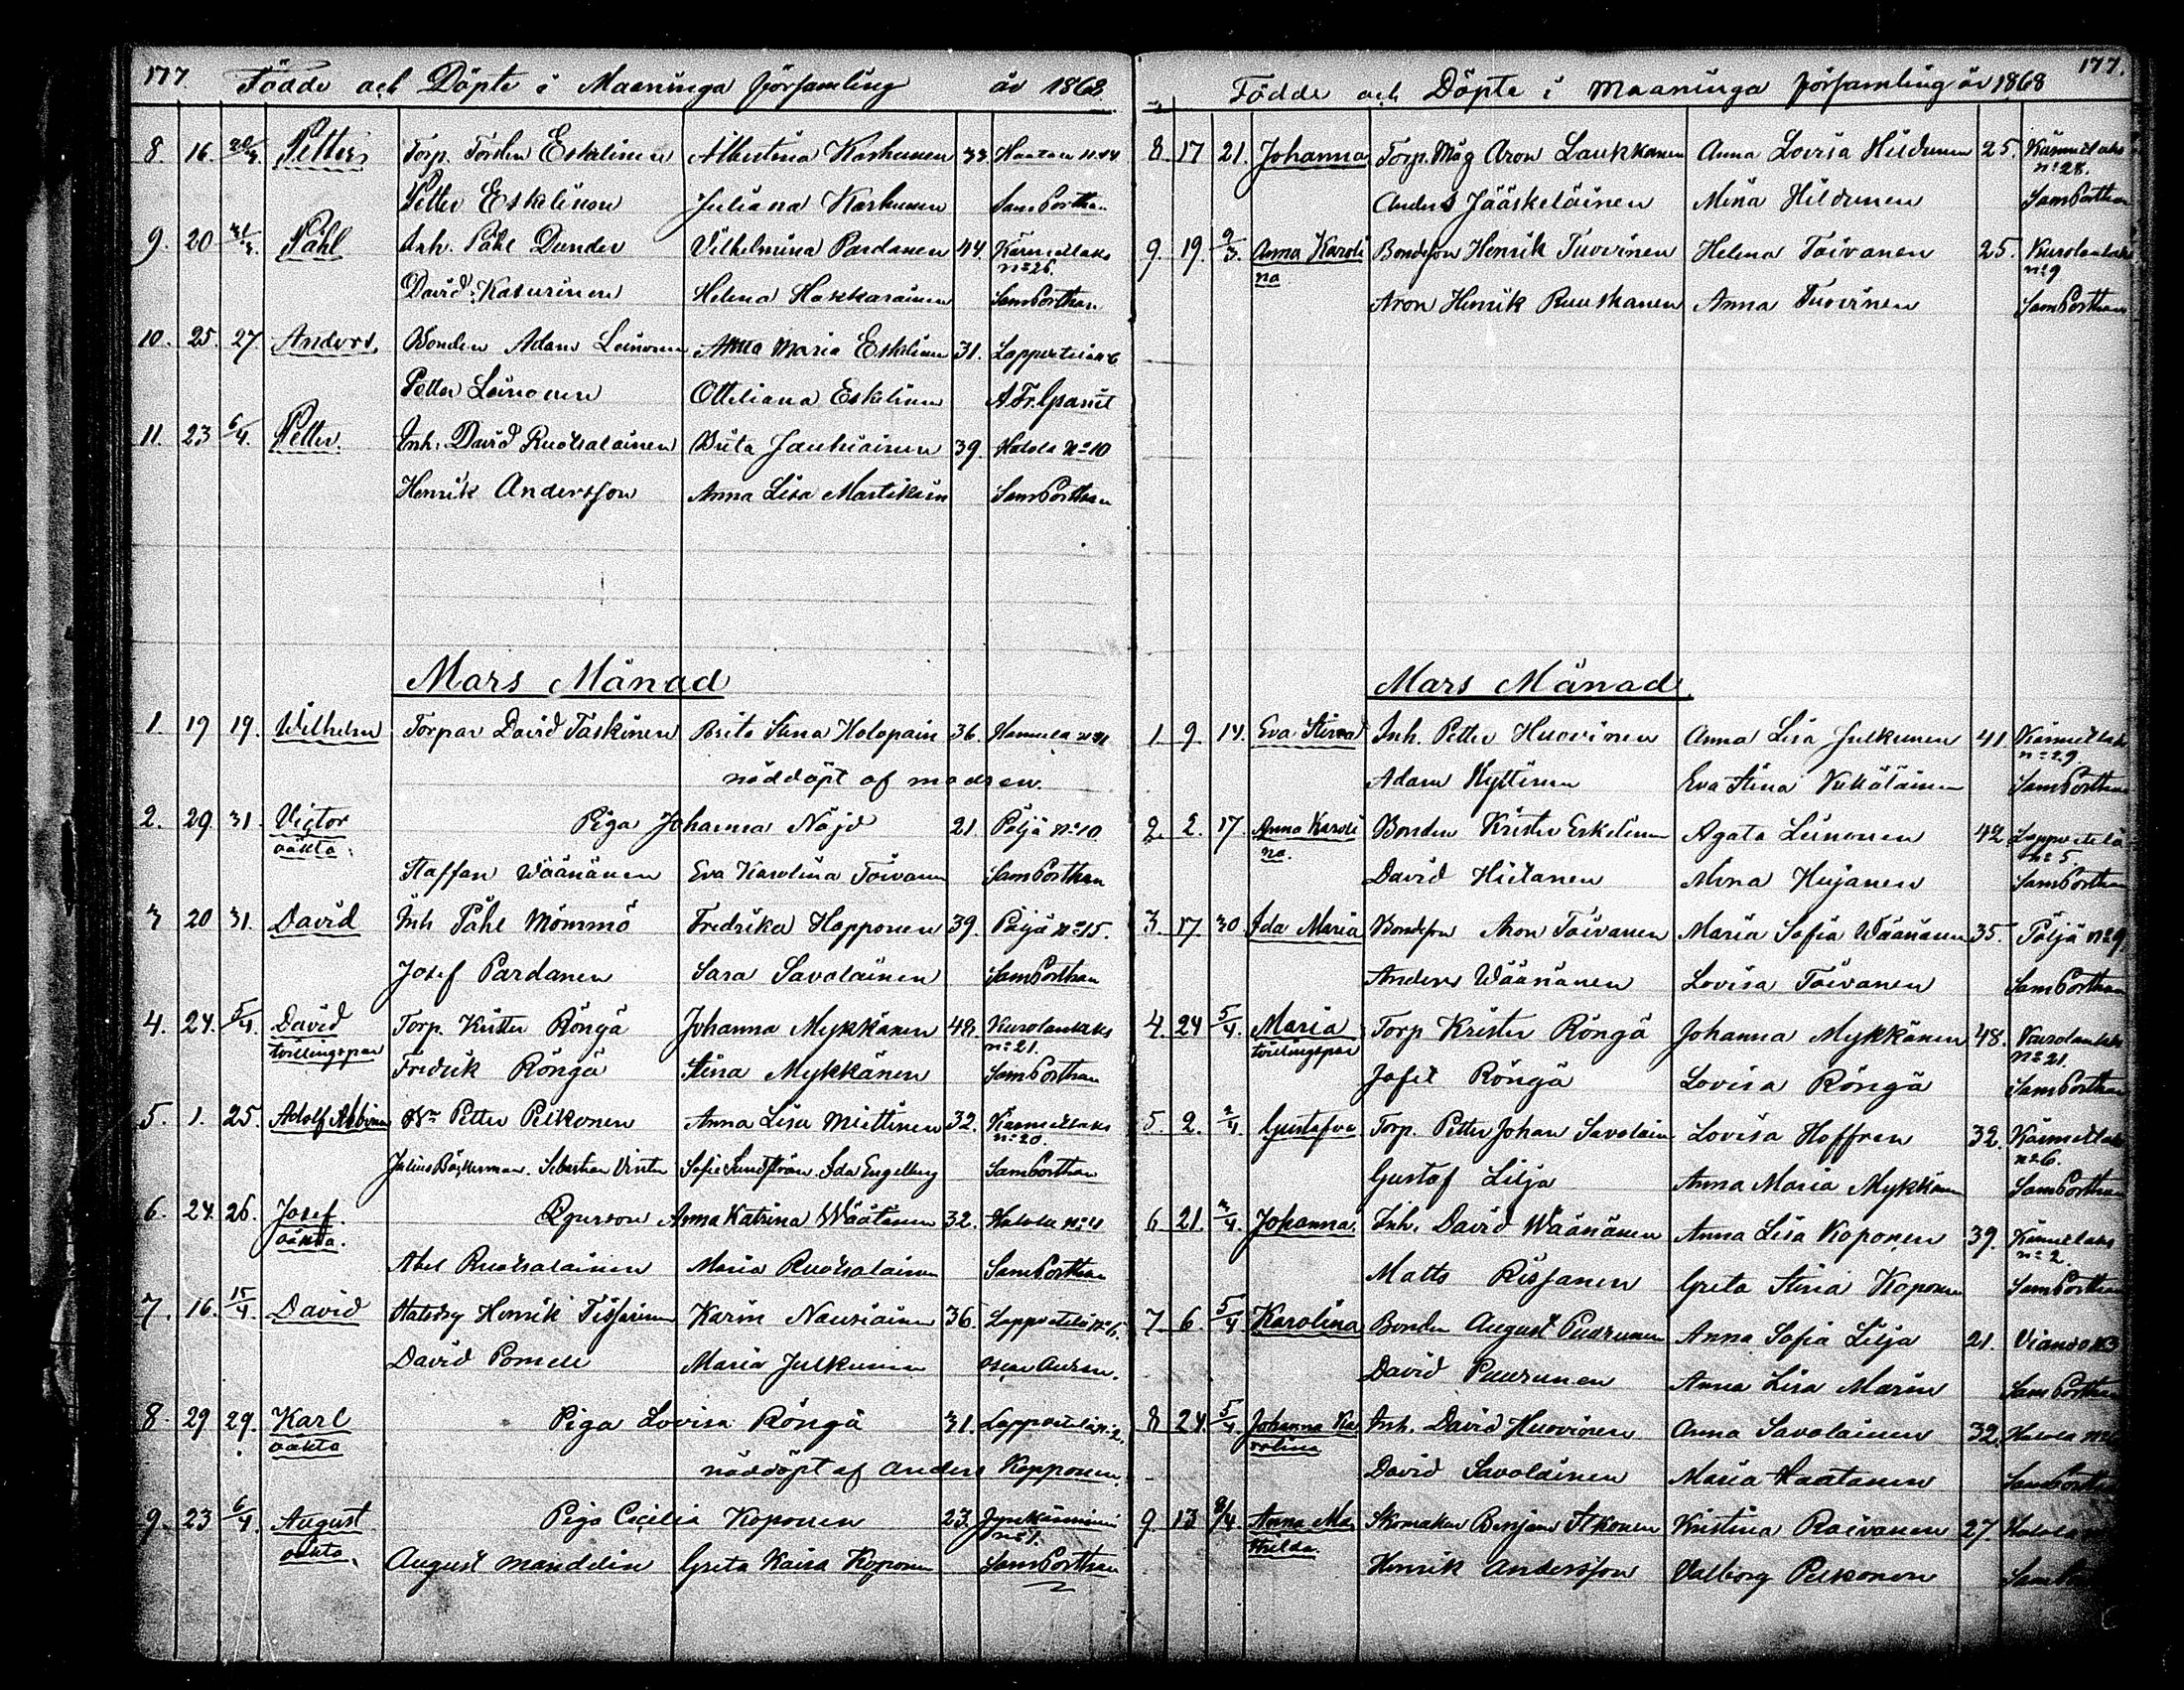 177. Födde och Döpte i Maaninga församling år 1868.
8. 16. 20/3. Petter Torp. Torsten Eskelinen Albertina Karhunen 33. Haatala N:44
Petter Eskelinen Juliana Karhunen Sam Porthan
9. 20 31/3. Påhl Inh. Påhl Dunder Vilhelmina Pardanen 44. Kärmetlaks
n:o 26.
David Kasurinen Helena Hakkarainen Sam Porthan
10. 25. 27 Anders. Bonden Adam Leinonen Anna Maria Eskelinen 31. Lappetelä N:6
Petter Leinonen Otteliana Eskelinen A. Fr. Granit
11. 23 6/4. Petter. Inh. David Ruotsalainen Brita Jauhiainen 39. Halola N:o 10
Henrik Andersson Anna Lisa Martikain Sam Porthan
Mars Månad
1. 19 19. Wilhelm Torpar David Taskinen Brita Stina Holopain 36. Hamula
nöddöpt af modren.
2. 29. 31. Victor Piga Johanna Nöjd 21. Pöljä N:o 10
oäkta.
Staffan Wäänänen Eva Karolina Toivanen Sam Porthan
3 20 31. David Inh Påhl Mömmö Fredrika Happonen 39. Pöljä N:o 15.
Josef Pardanen Sara Savolainen Sam Porthan
4. 24. 5/4. David Torp. Krister Röngä Johanna Mykkänen 48. Kurolanlaks
tvillingspar n:o 21.
Fredrik Röngä Stina Mykkänen Sam Porthan
5. 1. 25. Adolf Albinus Petter Pelkonen Anna Lisa Miettinen 32. Kärmetlaks
n:o 20.
Julius Bäckerman. Sebastian Vinter Sofie Sundström. Ida Engelberg Sam Porthan
6. 24. 26. Josef. Anna Katrina Wäätänen 32. Halola
oäkta.
Abel Ruotsalainen Maria Ruotsalainen Sam Porthan
7. 16. 15/4. David Henrik Tissarinen Karin Nousiainen 36. Lappetelä N:6.
David Pomell Maria Julkunen
8. 29 29. Karl Piga Lovisa Röngä 31. Lappetelä N:2.
oäkta
nöddöpt af Anders Kopponen.
9. 23 6/4. August Piga Cecilia Koponen 23. Jynkänniemi
oäkta. n:o 1.
August Mandelin Greta Kaisa Koponen Sam Porthan
Födde och Döpte i Maaninga församling år 1868 177.
8. 17 21. Johanna Torp. Måg Aron Laukkanen Anna Lovisa Hildunen 25. Kärmetlaks
n:o 28.
Anders Jääskeläinen Mina Hildunen Sam Porthan
9. 19. 9/3. Anna Karoli Bondeson Henrik Tuovinen Helena Toivanen 25. Kurolanlaks
na n:o 9
Aron Henrik Ruuskanen Anna Tuovinen Sam Porthan
Mars Månad.
1. 9. 14. Eva Stina Inh. Petter Huovinen Anna Lisa Julkunen 41 Kärmetlaks
n:o 29.
Adam Kyllönen Eva Stina Sam Porthan
2. 2. 17. Anna Karoli Bonden Krister Eskelinen Agata Leinonen 42 Lappetelä
na. n:o 5.
David Hietanen Mina Heijanen Sam Porthan
3. 17. 30. Ida Maria Bondeson Aron Toivanen Maria Sofia Wäänänen 35. Pöljä N:o 9
Anders Wäänänen Lovisa Toivanen Sam Porthan
4. 24 5/4. Maria Torp Krister Röngä Johanna Mykkänen 48. Kurolanlaks
tvillingspar n:o 21.
Josef Röngä Lovisa Röngä Sam Porthan
5. 2. 2/4. Gustafva Torp. Petter Johan Savolain Lovisa Hoffren 32. Kärmetlaks
n:o 6.
Gustaf Lilja Anna Maria Mykkänen Sam Porthan
6 21. Johanna. Inh. David Wäänänen Anna Lisa Koponen 39. Kärmetlaks
n:o 2.
Matts Rissanen Greta Stina Koponen Sam Porthan
7. 6. 5/4 Karolina Bonden August Puurunen Anna Sofia Lilja 21. Vianto N:3
David Puurunen Anna Lisa Marin Sam Porthan
8 24. 5/4. Johanna Ka Inh. David Huovinen Anna Savolainen 32. Halola
rolina
David Savolainen Maria Haatanen Sam Porthan
9. 13 Anna Ma Skomakar Benjam Itkonen Kristina Raivanen 27. Halola
thilda.
Henrik Andersson Valborg Pelkonen Sam